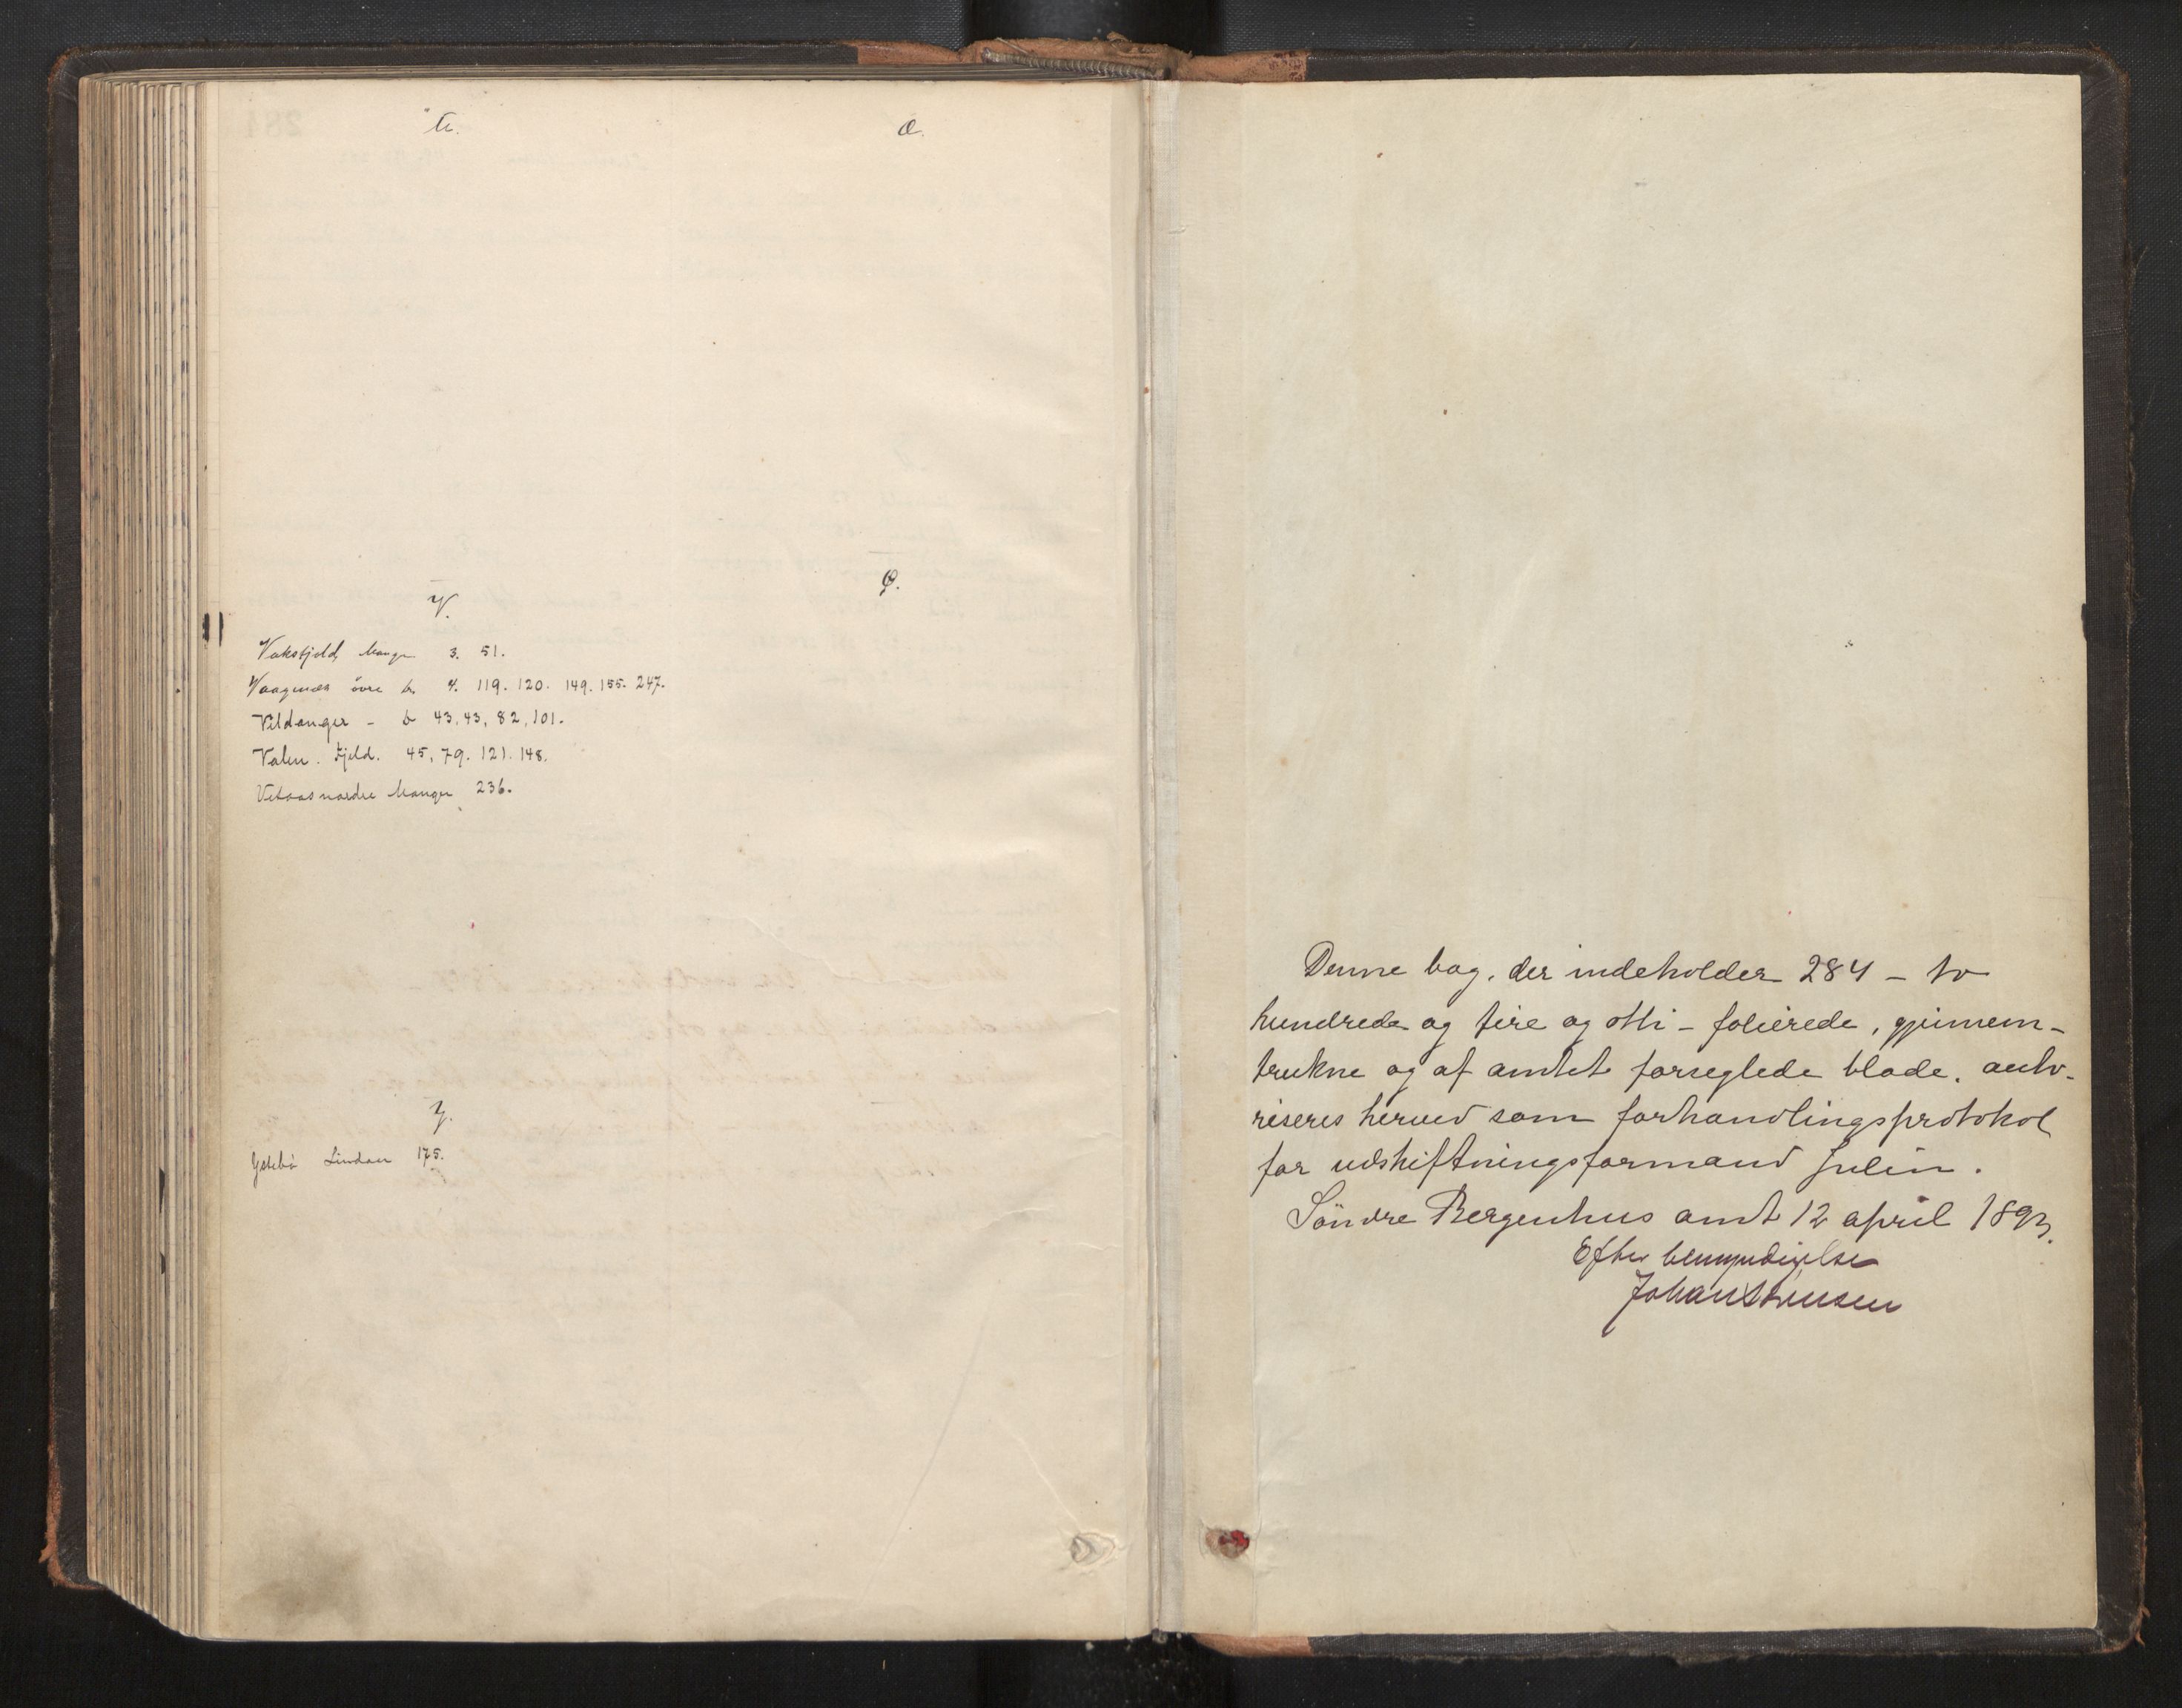 Ü.
Æ.
V.
Ø.
Vaksfjeld, Manger 3. 51.
Vaagenes övre do 4. 119. 120. 149. 155. 247.
Vildanger - do 43. 43, 82, 101.
Valen. Fjeld. 45, 79. 121. 148.
Vetaas nordre Manger 236.
Y.
Ystebö Lindaas 175.
Denne bog, der indeholder 284 - to
hundrede og fire og otti - folierede, gjennem-
trukne og af amtet forseglede blade, auto-
riseres herved som forhandlingsprotokol
for udskiftningsformand Julin.
Söndre Bergenhus amt 12 april 1893.
Efter bemyndigelse